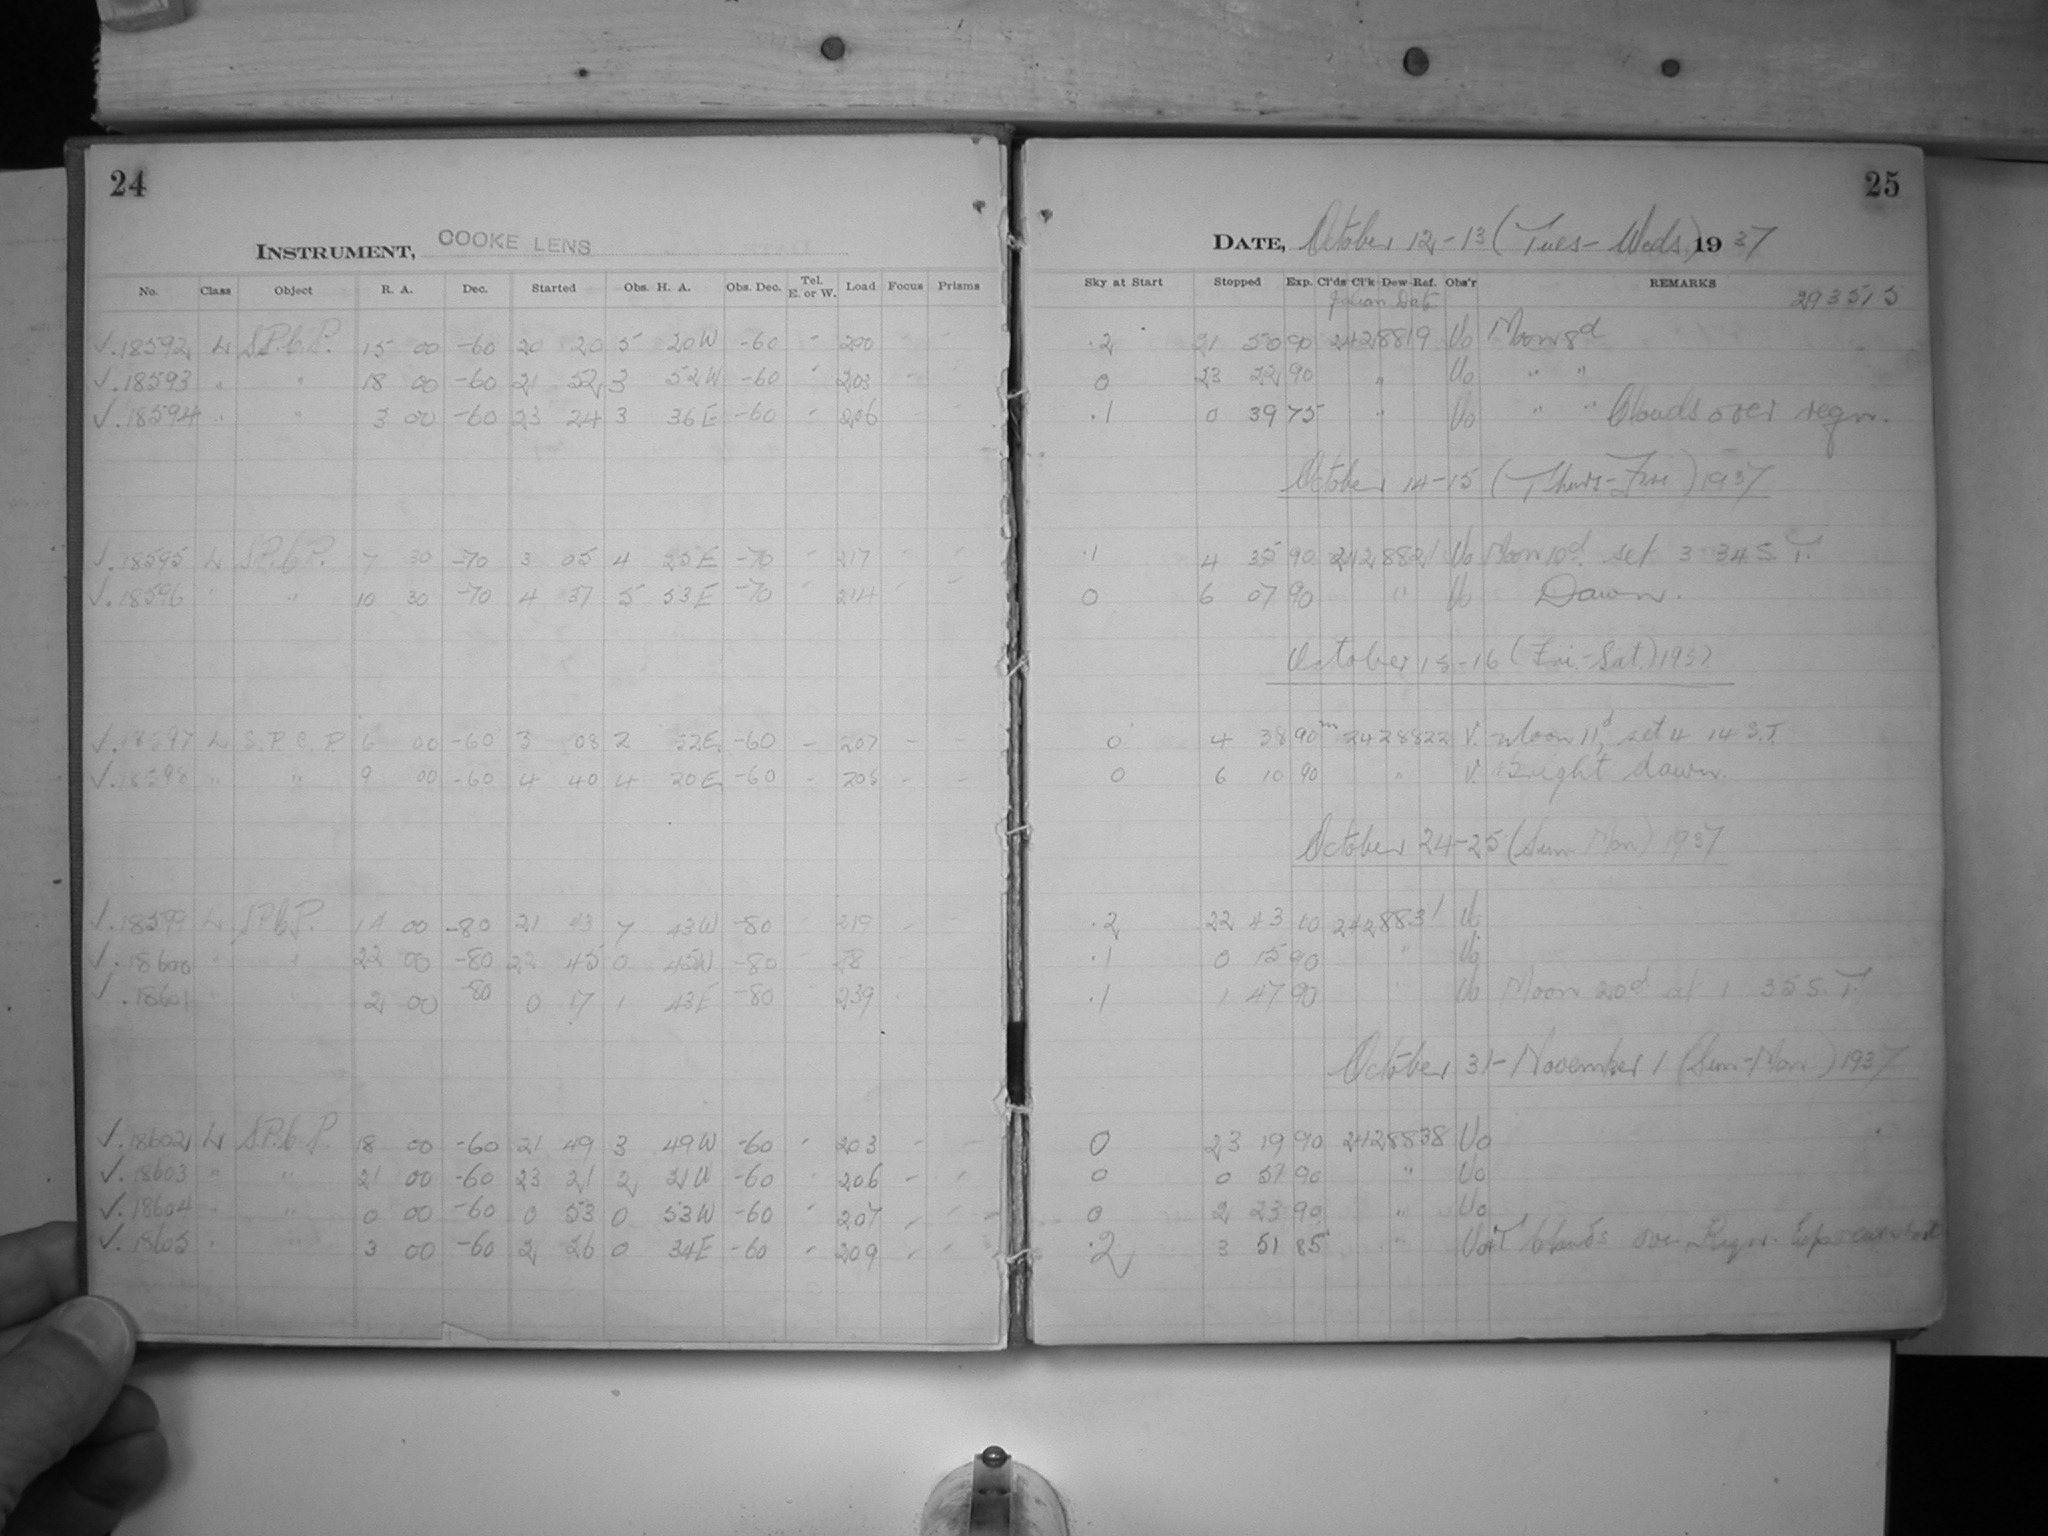 24
INSTRUMENT, COOKE LENS
No. Class Object R. A. Dec. Started Obs. H. A. Obs. Dec. Tel. E. or W. Load Focus Prisms
√.18592 L S.P.C.P. 15 00 -60 20 20 5 20W -60 " 200 - -
√.18593 " " 18 00 -60 21 52 3 52W -60 " 203 - -
√.18594 " " 3 00 -60 23 24 3 36E -60 " 206 - -
√.18595 L S.P.C.P. 7 30 -70 3 05 4 25E -70 " 217 - -
√.18596 " " 10 30 -70 4 37 5 53E -70 " 214
√.18597 L S.P.C.P. 6 00 -60 3 08 2 52E -60 - 207 - -
√.18598 " " 9 00 -60 4 40 4 20E -60 - 205 - -
√.18599 L S.P.C.P. 14 00 -80 21 43 7 43W -80 219 -
√.18600 " " 22 00 -80 22 45 0 45W -80
√.18601 " " 2 00 -80 0 17 1 43E -80 239
√.18602 L S.P.C.P. 18 00 -60 21 49 3 49W -60 " 203 - -
√.18603 " " 21 00 -60 23 21 2 21W -60 " 206 - -
√.18604 " " 0 00 -60 0 53 0 53W -60 " 207 - -
√.18605 " " 3 00 -60 2 26 0 34E -60 " 209 - -
25
DATE, October 12-13 (Tues-Weds.) 1937
Sky at Start Stopped Exp. Cl'ds Cl'k Dew Ref. Obs'r REMARKS
Julian Date 293515
.2 21 50 90 2428819 Uo Moon 8d
0 23 22 90 " Uo " "
.1 0 39 75 " Uo " " Clouds over regn.
October 14-15 (Thurs-Fri) 1937
.1 4 35 90 2428821 Uo Moon 10d. set 3 34 S.T.
0 6 07 90 " Uo Dawn.
October 15-16 (Fri.-Sat.) 1937
0 4 38 90m 2428822 V. Moon 11d, set 4 14 S.T.
0 6 10 90 " V. Bright dawn.
October 24-25 (Sun-Mon) 1937
.2 22 43 60 2428831 Uo
.1 0 15 90 " Uo
.1 1 47 90 " Uo Moon 20d at 1 35 S.T.
October 31-November 1 (Sun-Mon) 1937
0 23 19 90 2428838 Uo
0 0 51 90 " Uo
0 2 23 90 " Uo
.2 3 51 85 " Clouds over Regn.